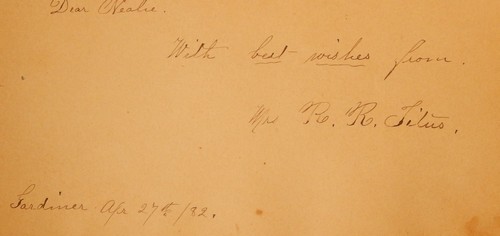 Dear Nealie.
With best wishes from.
Mrs R. R. Titus.
Gardiner Apr 27th/82.